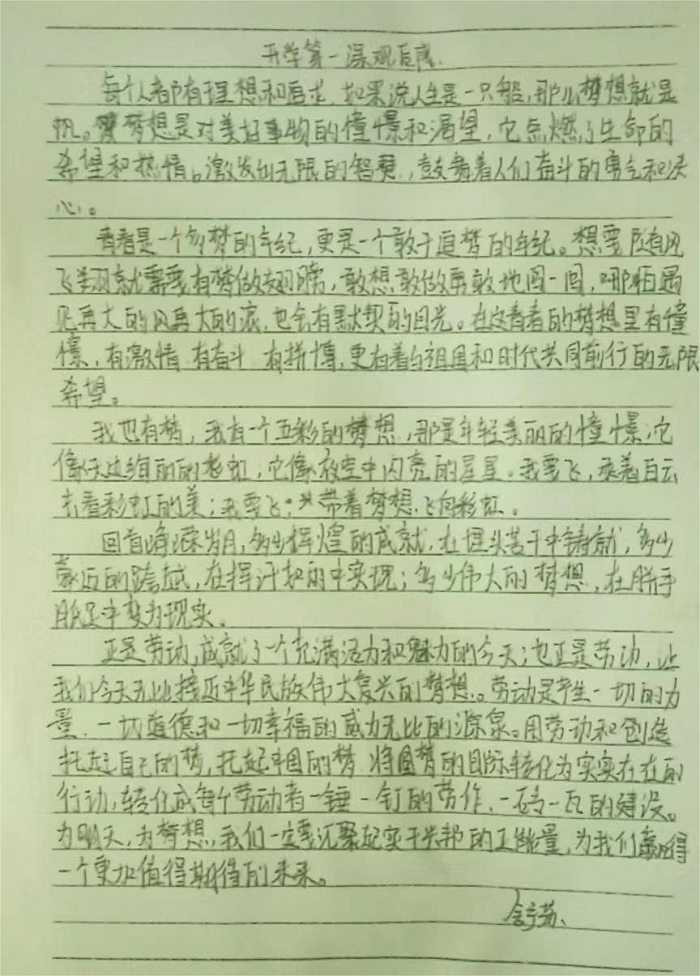 开学第一课观后感
每个人都有理想和追求,如果说人生是一只船,那么梦想就是
帆。梦想是对美好事物的憧憬和渴望,它点燃了生命的
希望和热情。激发出无限的智慧,鼓舞着人们奋斗的勇气和决
心。
青春是一个多梦的年纪,更是一个敢于追梦的年纪。想要随风
飞翔就需要有梦做翅膀,敢想敢做勇敢地闯一闯,哪怕遇
见再大的风再大的浪,也会有默契的目光。在这青春的梦想里有憧
憬,有激情 有奋斗 有拼搏,更有着与祖国和时代共同前行的无限
希望。
我也有梦,我有一个五彩的梦想,那是年轻美丽的憧憬,它
像天边绚丽的彩虹,它像夜空中闪亮的星星。我要飞,乘着白云
去看彩虹的美;我要飞,带着梦想飞向彩虹。
回首峥嵘岁月,多少辉煌的成就,在埋头苦干中铸就,多少
豪迈的跨越,在挥汗如雨中实现;多少伟大的梦想,在胼手
胝足中变为现实。
正是劳动,成就了一个充满活力和魅力的今天;也正是劳动,让
我们今天无比接近中华民族伟大复兴的梦想。劳动是产生一切的力
量,一切道德和一切幸福的威力无比的源泉。用劳动和创造
托起自己的梦,托起中国的梦 将圆梦的目标转化为实实在在的
行动,转化成每个劳动者一锤一钉的劳作,一砖一瓦的建设。
为明天,为梦想,我们一定要汇聚起实干兴邦的正能量,为我们赢得
一个更加值得期待的未来。